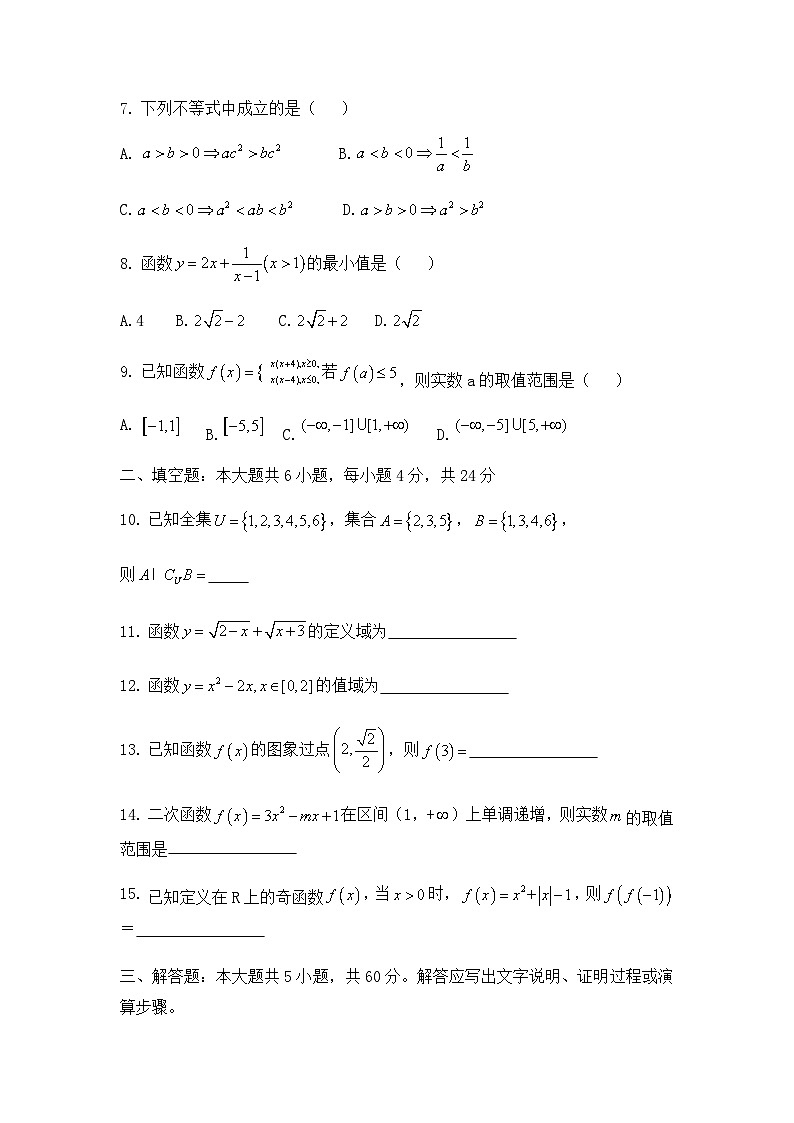 7. 下列不等式中成立的是（　　）
A. a > b > 0 ⇒ ac² > bc²　　B. a < b < 0 ⇒ 1/a < 1/b
C. a < b < 0 ⇒ a² < ab < b²　　D. a > b > 0 ⇒ a² > b²
8. 函数 y = 2x + 1/(x−1) (x > 1) 的最小值是（　　）
A. 4　B. 2√2 − 2　C. 2√2 + 2　D. 2√2
9. 已知函数 f(x) = { x(x+4), x≥0, x(x−4), x≤0, 若 f(a) ≤ 5，则实数 a 的取值范围是（　　）
A. [−1,1]　B. [−5,5]　C. (−∞,−1]∪[1,+∞)　D. (−∞,−5]∪[5,+∞)
二、填空题：本大题共 6 小题，每小题 4 分，共 24 分
10. 已知全集 U = {1,2,3,4,5,6}，集合 A = {2,3,5}，B = {1,3,4,6}，
则 A I C_U B = _____
11. 函数 y = √(2−x) + √(x+3) 的定义域为________________
12. 函数 y = x² − 2x, x∈[0,2] 的值域为________________
13. 已知函数 f(x) 的图象过点 (2, √2/2)，则 f(3) = ________________
14. 二次函数 f(x) = 3x² − mx + 1 在区间（1, +∞）上单调递增，则实数 m 的取值
范围是________________
15. 已知定义在 R 上的奇函数 f(x)，当 x > 0 时，f(x) = x² + |x| − 1，则 f(f(−1))
=________________
三、解答题：本大题共 5 小题，共 60 分。解答应写出文字说明、证明过程或演
算步骤。